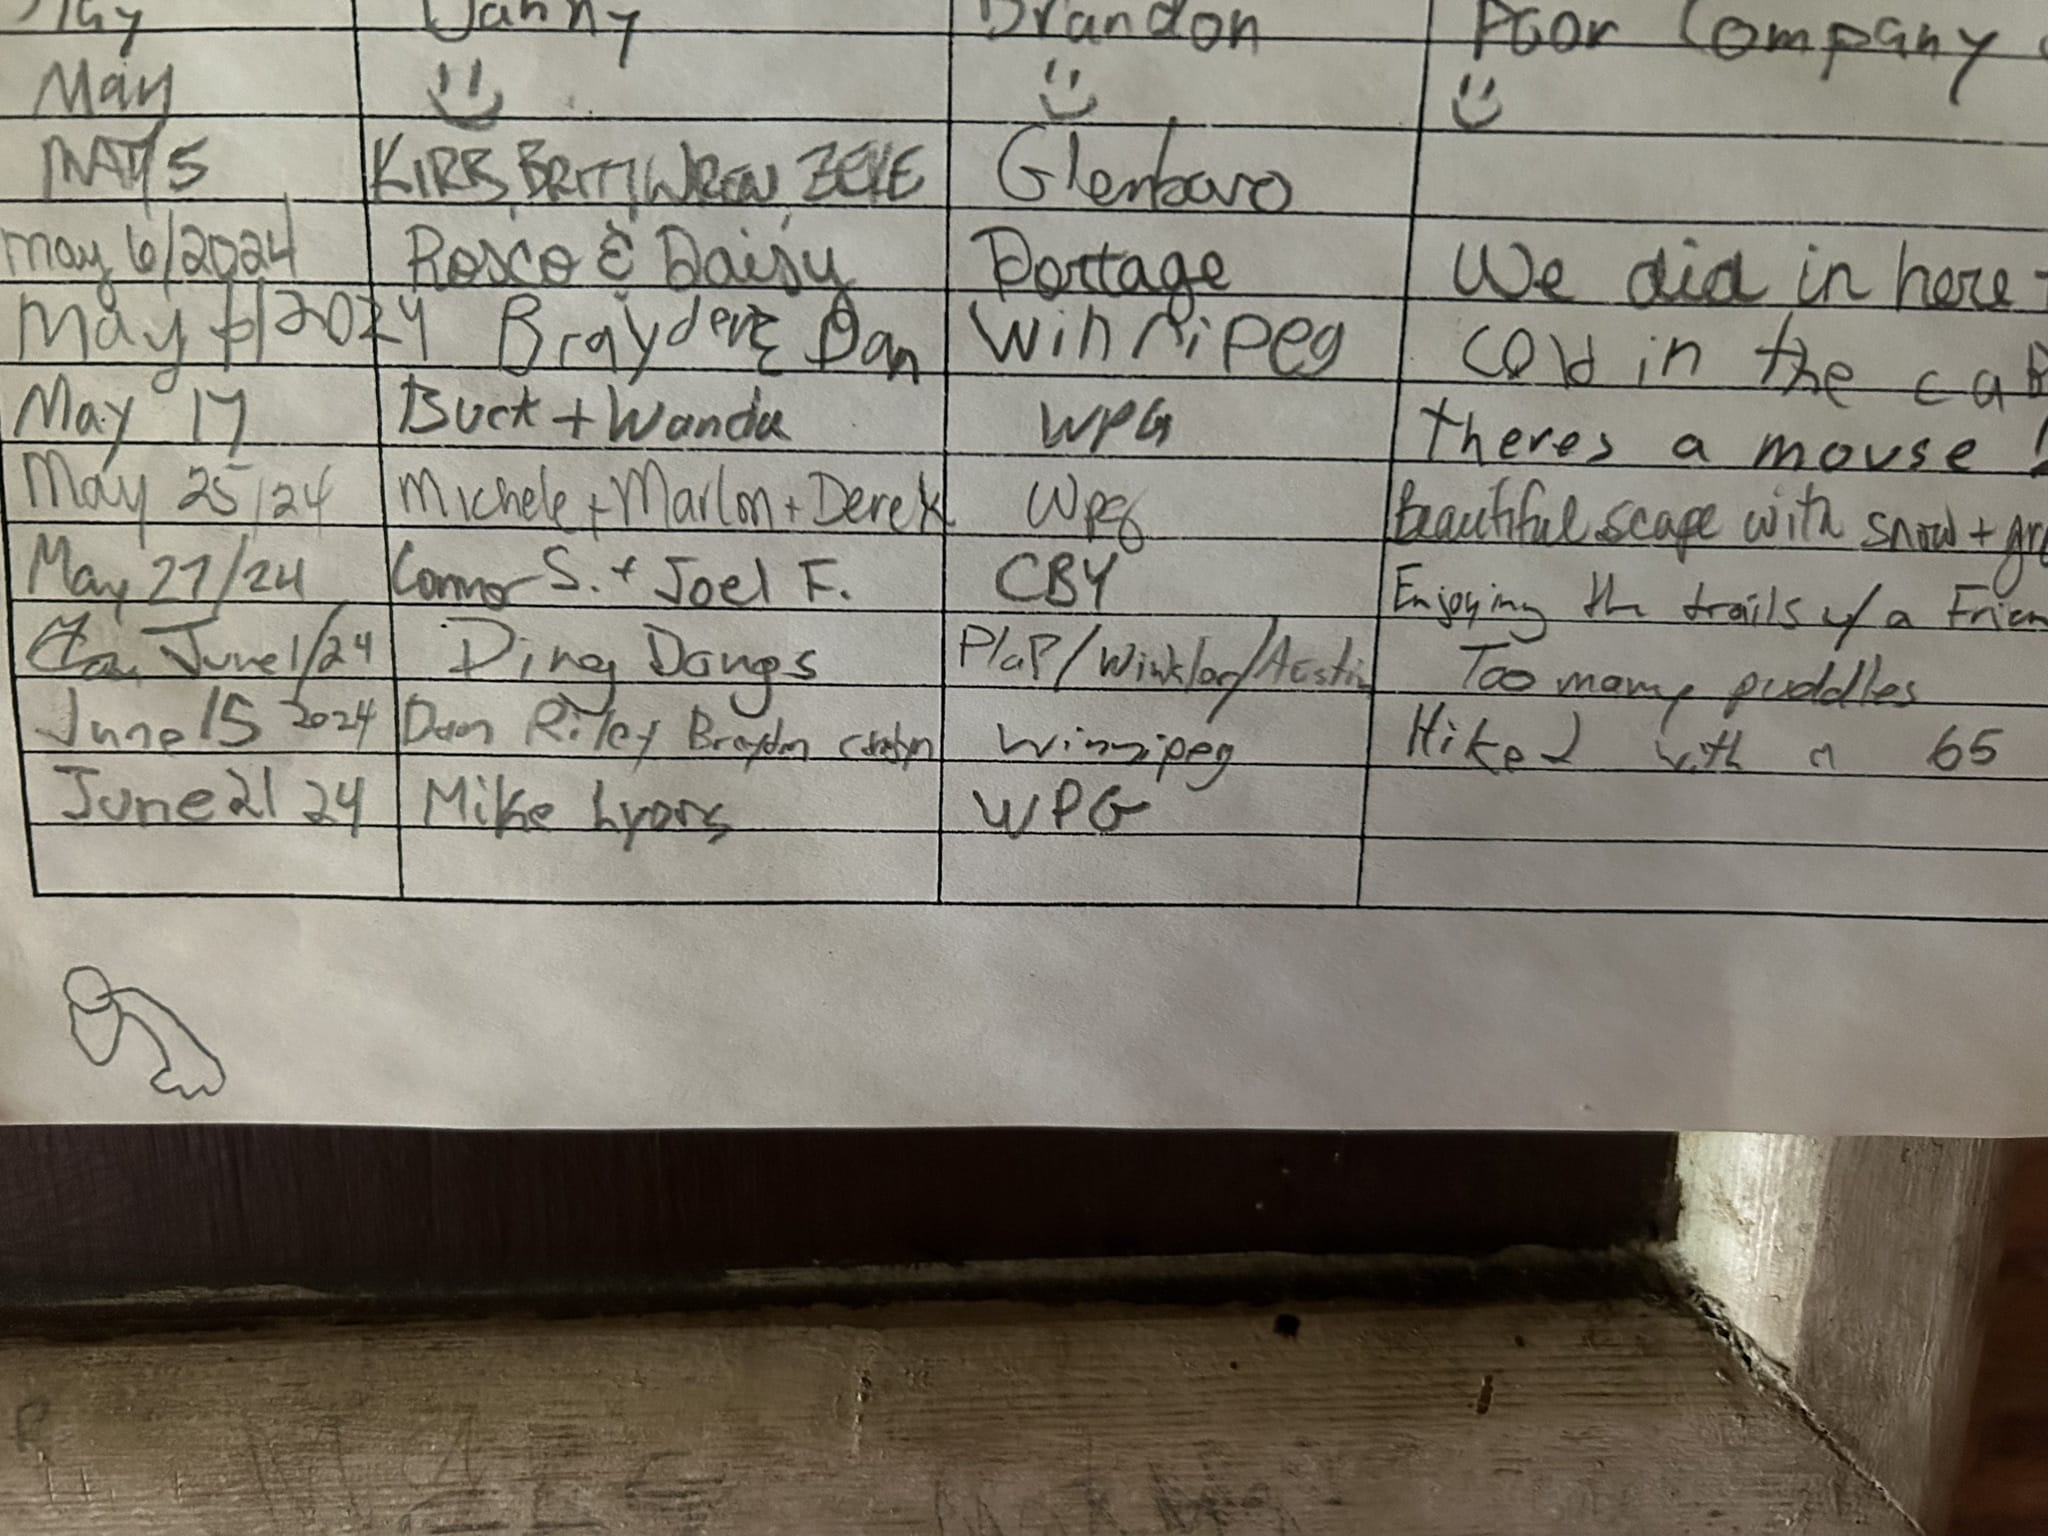 May Danny Brandon Poor Company
May
MAY 5 KIRB, BRITT, WREN, ZEKE Glenboro
May 6/2024 Rosco & Daisy Portage We did in here
May 6/2024 Brayden & Dan Winnipeg Cold in the
May 17 Buck + Wanda WPG theres a mouse
May 25/24 Michele + Marlon + Derek Wpg Beautiful scape with snow +
May 27/24 Connor S. + Joel F. CBY Enjoying the trails w/ a
June 1/24 Ding Dongs PlaP/Winkler/Austin Too many puddles
June 15 2024 Dan Riley Braydon Winnipeg Hiked with a 65
June 21 24 Mike Lyons WPG